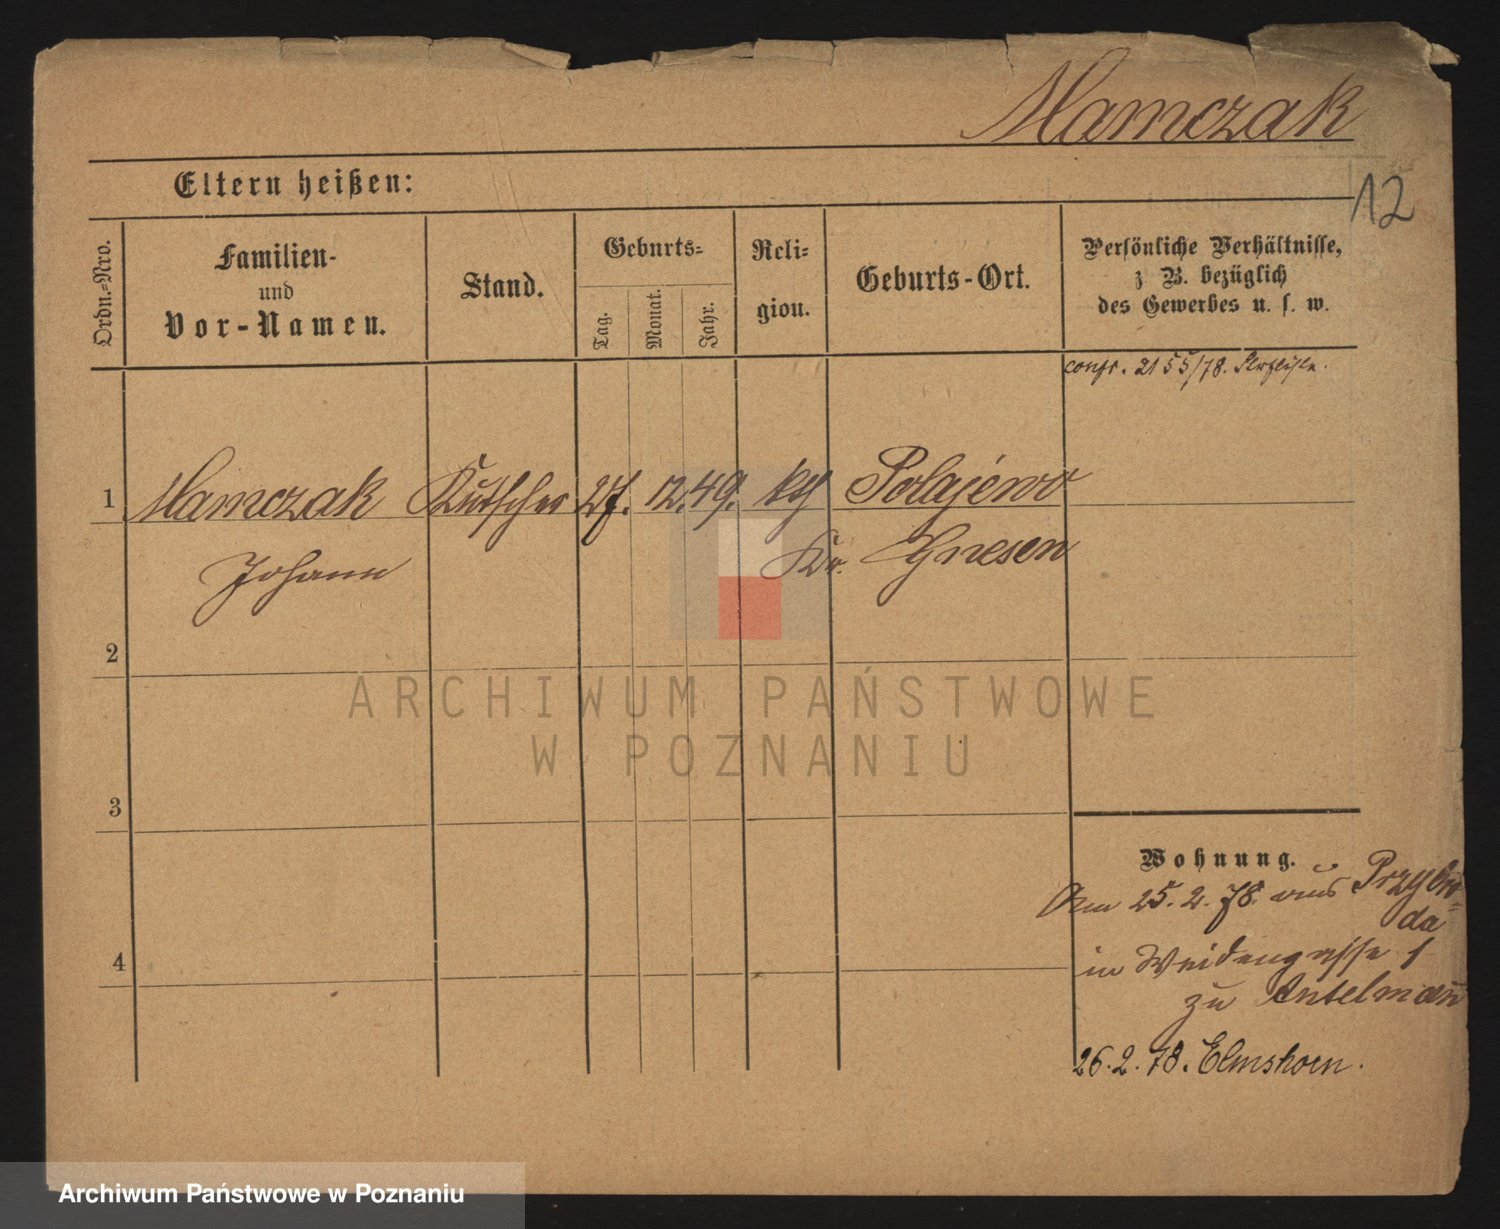 Mamczak
12
Eltern heißen:
Ordn.-Nro.
Familien-
und
Vor-Namen.
Stand.
Geburts-
Tag.
Monat.
Jahr.
Reli-
gion.
Geburts-Ort.
Persönliche Verhältnisse,
z. B. bezüglich
des Gewerbes u. s. w.
2155/78.
1 Mamczak Kutscher 27. 12. 49. kth Polajewo
Johann Kr. Gnesen
2
3
4
ARCHIWUM PAŃSTWOWE
W POZNANIU
Wohnung.
Am 25. 2. 78. aus Przybro-
da
in Weidengasse 1
zu Antelmann
26. 2. 78. Elmshorn.
Archiwum Państwowe w Poznaniu